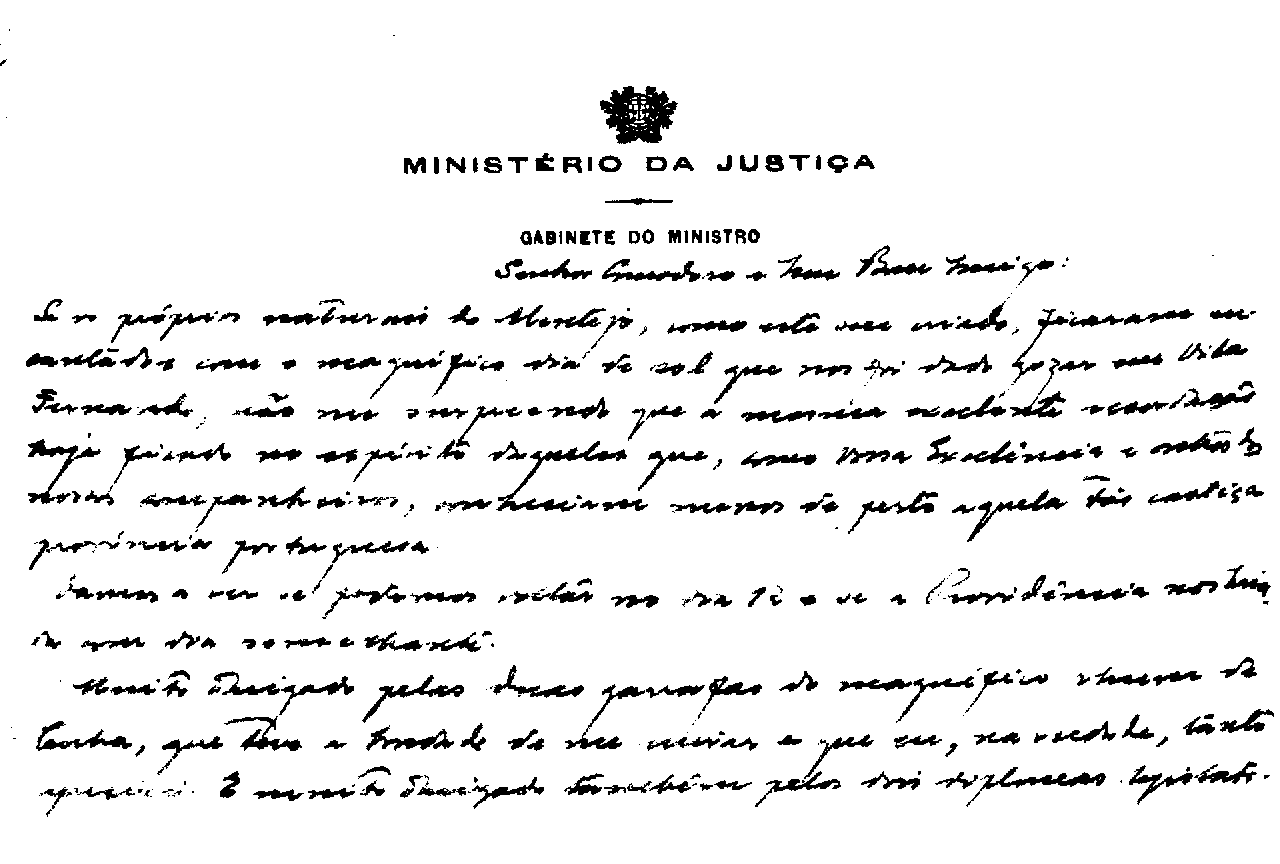 MINISTÉRIO DA JUSTIÇA
GABINETE DO MINISTRO
Senhor e meu Bom Amigo:
Se os próprios naturais do Alentejo, como este seu criado, ficaram en-
cantados com o magnífico dia de sol que nos foi dado gozar em Vila
Fernando, não me surpreende que a mesma excelente recordação
haja ficado no espírito daqueles que, como Vossa Excelência e
nossos companheiros, conheciam menos de perto aquela tão castiça
província portuguesa.
Vamos a ver se podemos voltar no dia 12 e se a Providência nos
da um dia semelhante.
Muito obrigado pelas duas garrafas do magnífico rhum da
que teve a bondade de me enviar e que eu, na verdade, tanto
apreciei. E muito obrigado também pelos dois diplomas legislati-